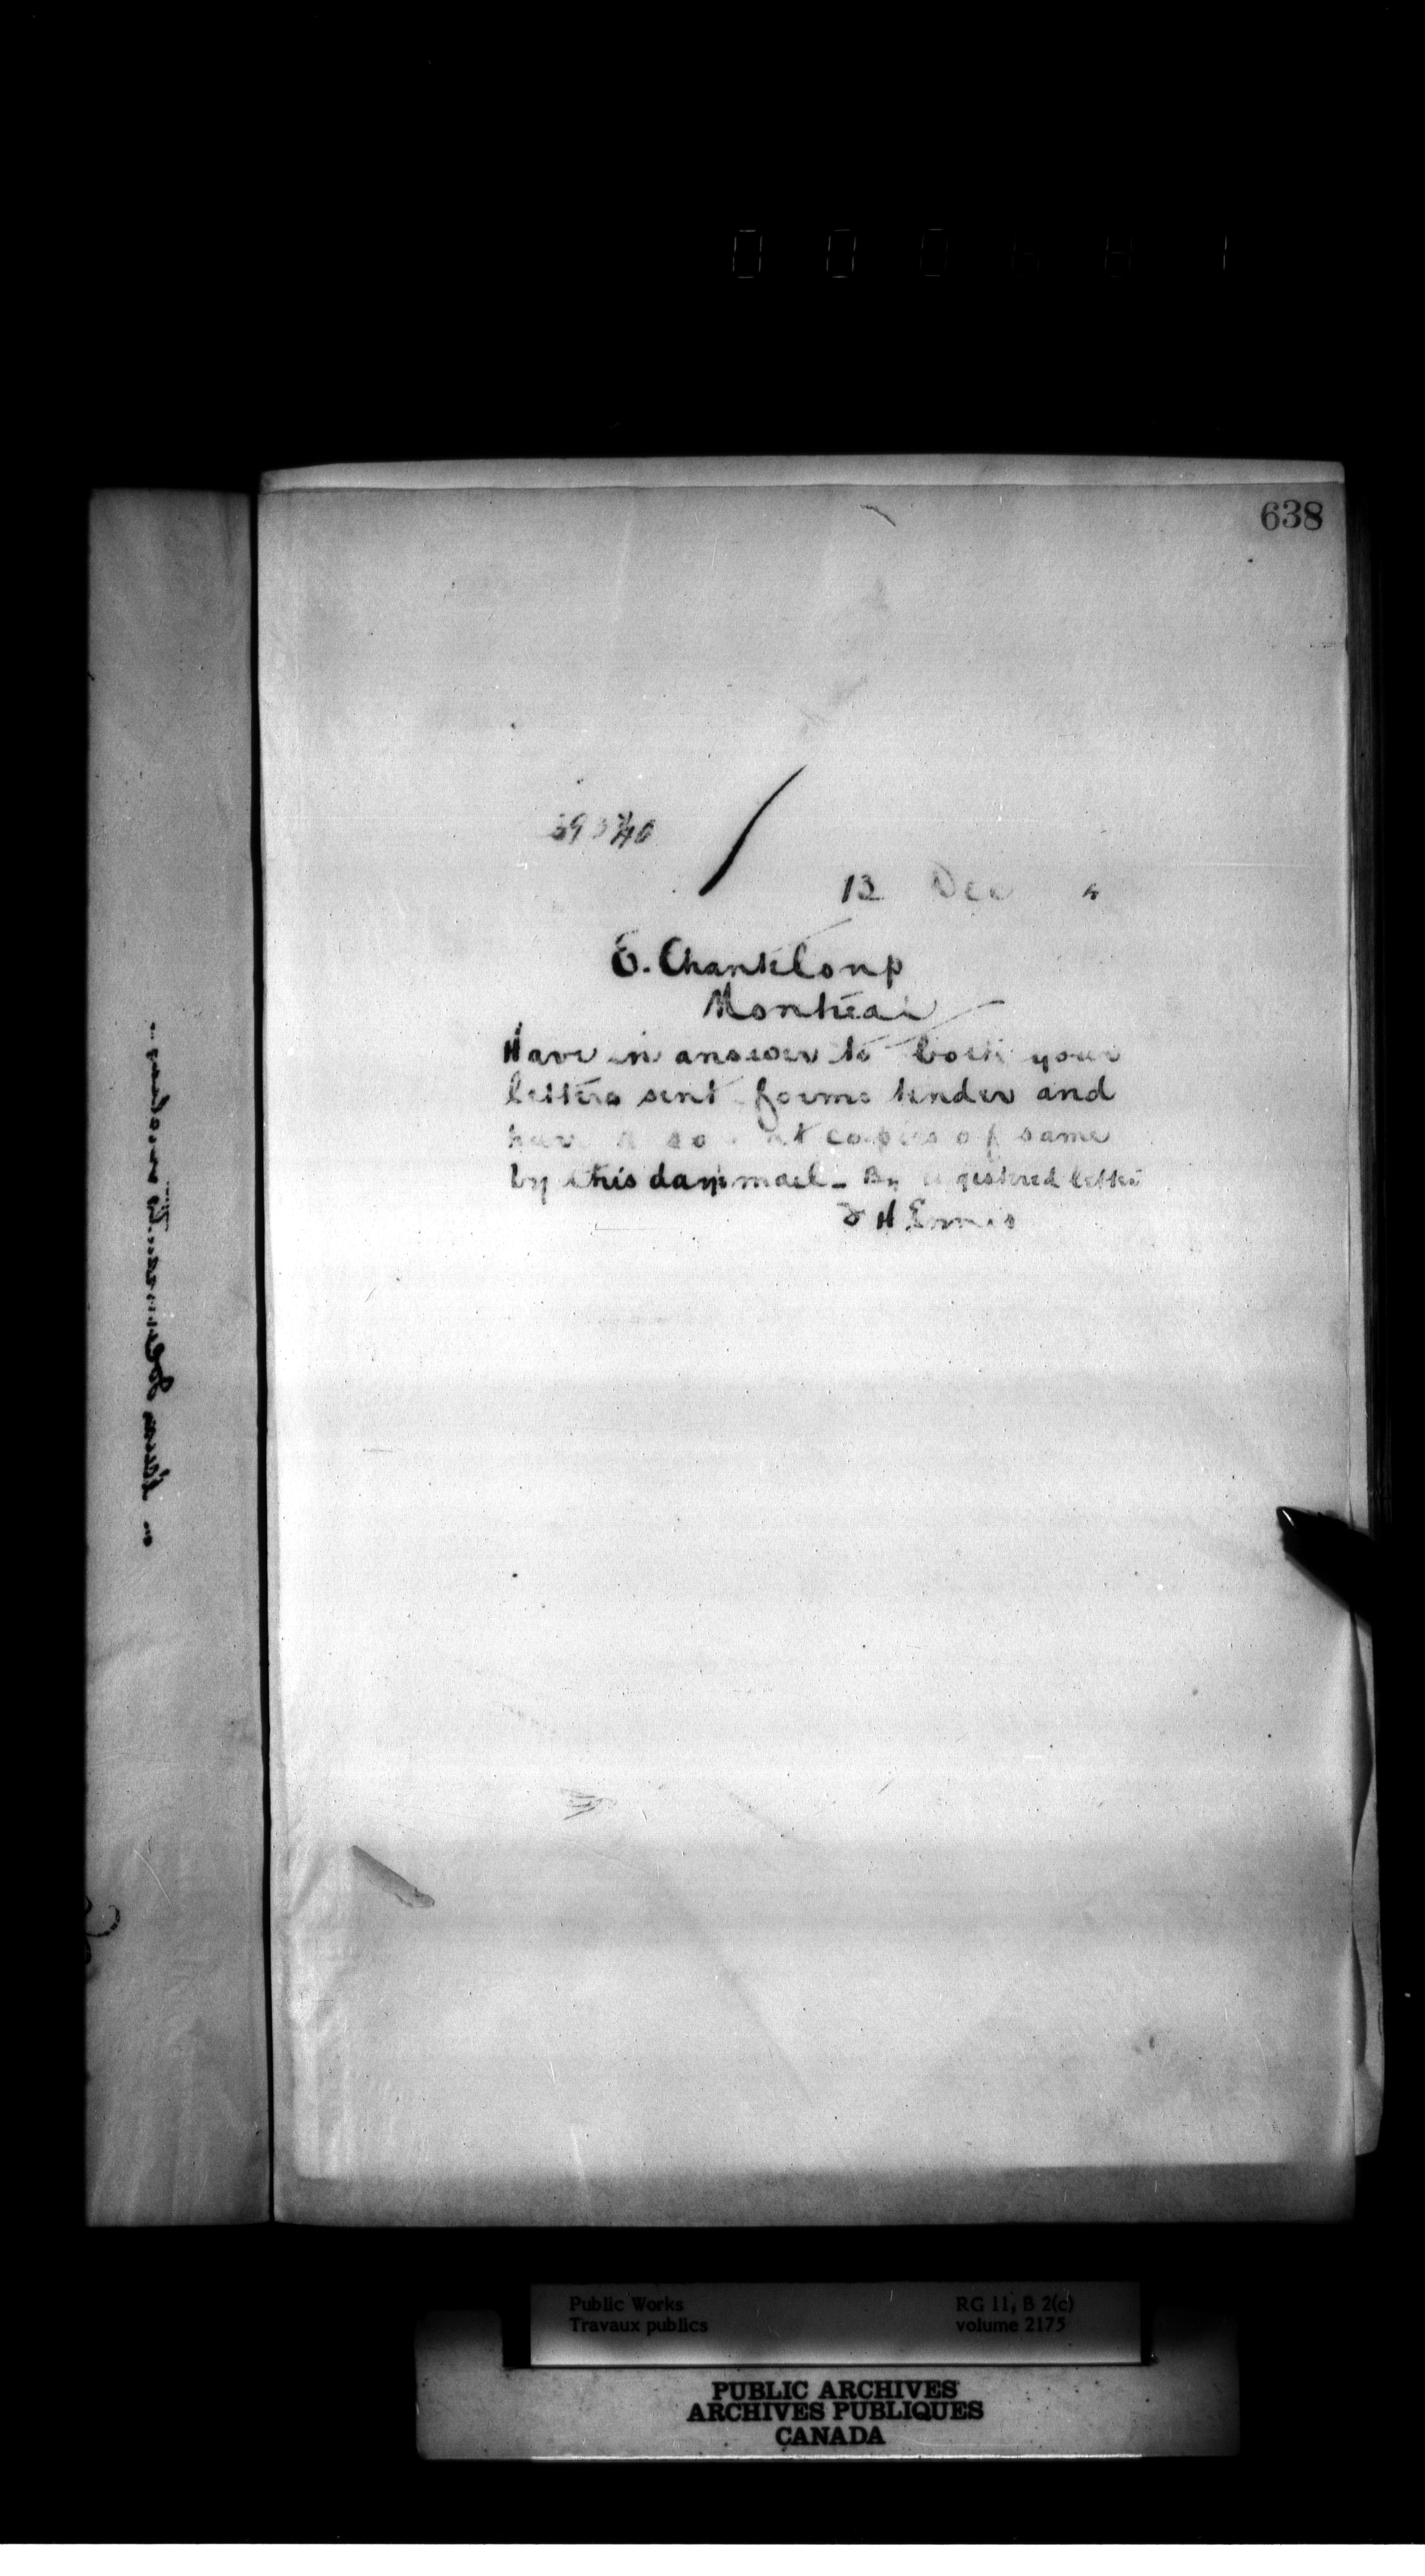 638
12 Dec
E. Chanteloup
Montreal
Have in answer to both your
letters sent forms tender and
have also sent copies of same
by this day's mail - By registered letter
F H Ennis
Public Works
Travaux publics
RG 11, B 2(c)
volume 2175
PUBLIC ARCHIVES
ARCHIVES PUBLIQUES
CANADA